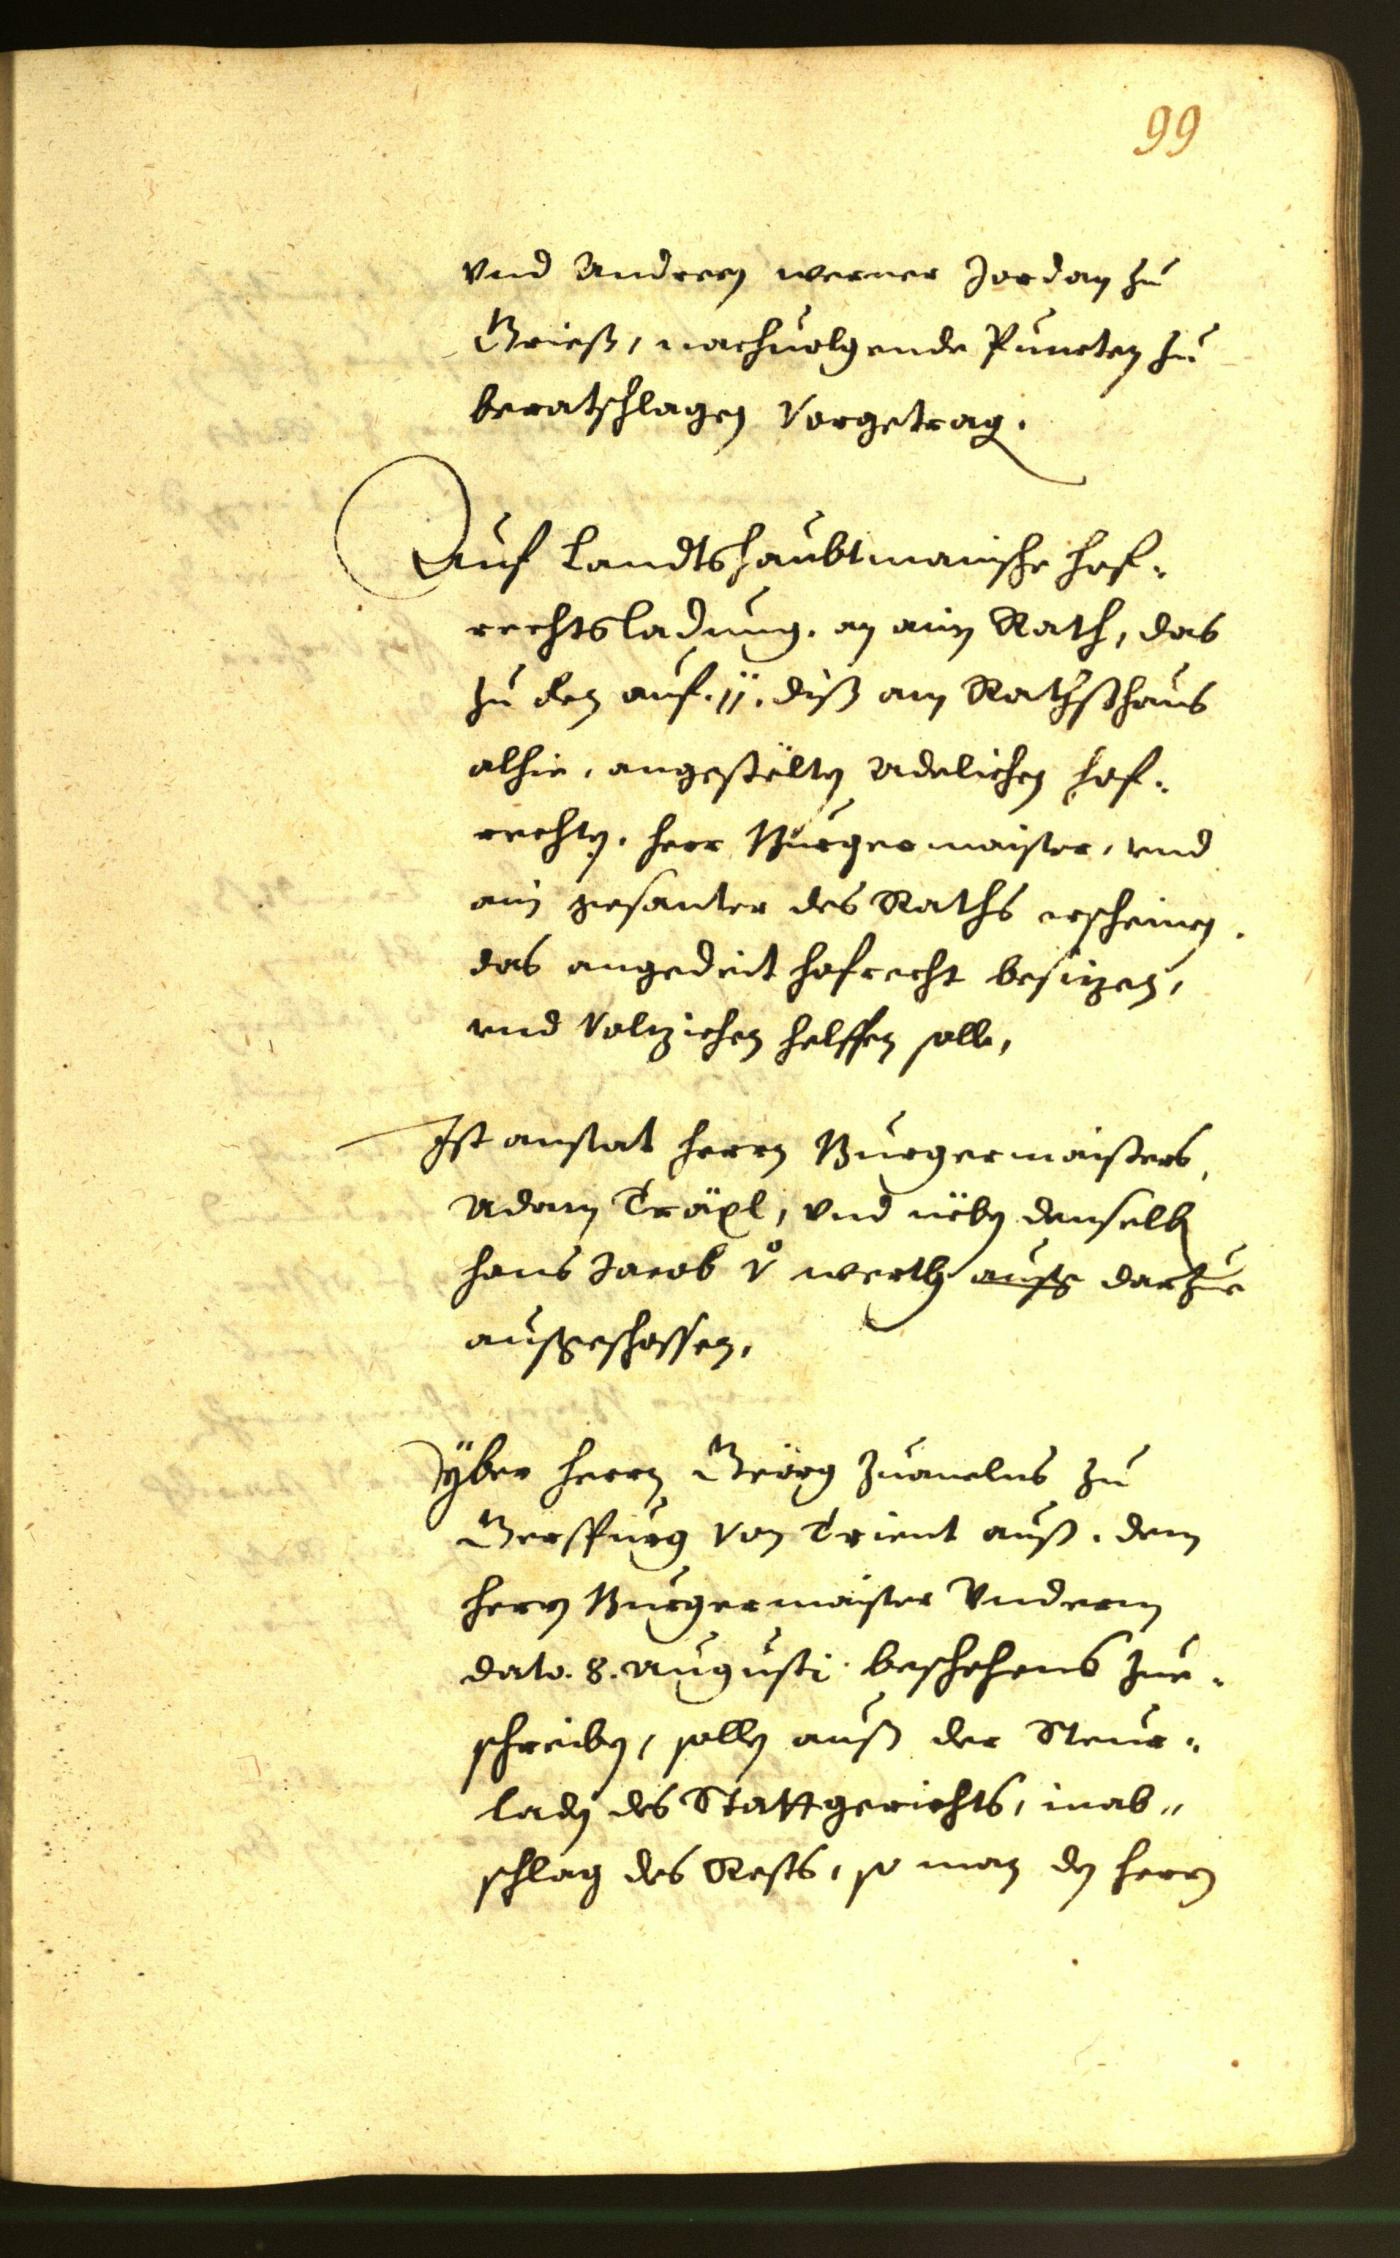 99
vnd Andreen werner Jordan zu
Grieß, nachuolgende Puncten zu
beratschlagen Vorgetrag.
Auf Landtshaubtmanische hof-
rechtsladung. an ain Rath, das
zu den auf. 11. diß am Rathßhaus
alhie, angestelten Adelichen hof-
rechten. herr Burgermaister, vnd
ain gesanter des Raths erscheinen.
das angedeit hofrecht besitzen,
vnd Volziehen helffen solle,
Ist anstat herrn Burgermaisters,
Adam Träxl, vnd neben denselben
hans Jacob Vo werth auß darzue
außgeschossen,
yber herrn Geörg zu
Gerspurg Von Trient auß. dem
herrn Burgermaister Vnderm
dato. 8. Augusti. beschehens zue-
schreiben, sollen auß der Steur-
laden des Stattgerichts, in ab-
schlag des Rests, so man den herrn